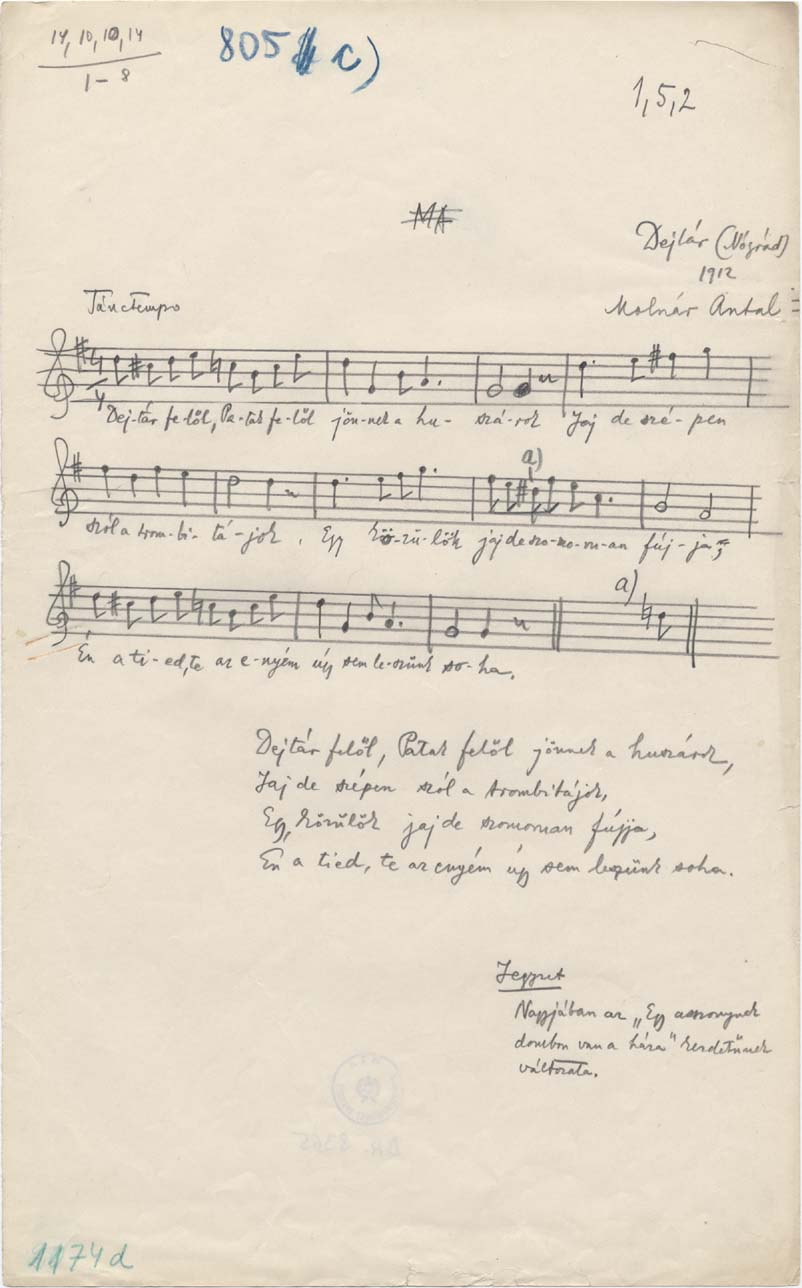 14, 10, 10, 14
1 - 8
805 c)
1, 5, 2
MA
Dejtár (Nógrád)
1912
Molnár Antal
Tánctempo
Dej-tár fe-lől, Pa-tak fe-lől jön-nek a hu- szá-rok Jaj de szé-pen
a)
szól a trom-bi-tá-jok, Egy kö-zü-lök jaj de szo-mo-ru-an fúj-ja;
a)
Én a ti-ed, te az e-nyém úgy sem le-szünk so-ha.
Dejtár felől, Patak felől jönnek a huszárok,
Jaj de szépen szól a trombitájok,
Egy közülök jaj de szomoruan fújja,
Én a tied, te az enyém úgy sem leszünk soha.
Jegyzet
Nagyjában az „Egy asszonynak
dombon van a háza" kezdetűnek
változata.
1174d